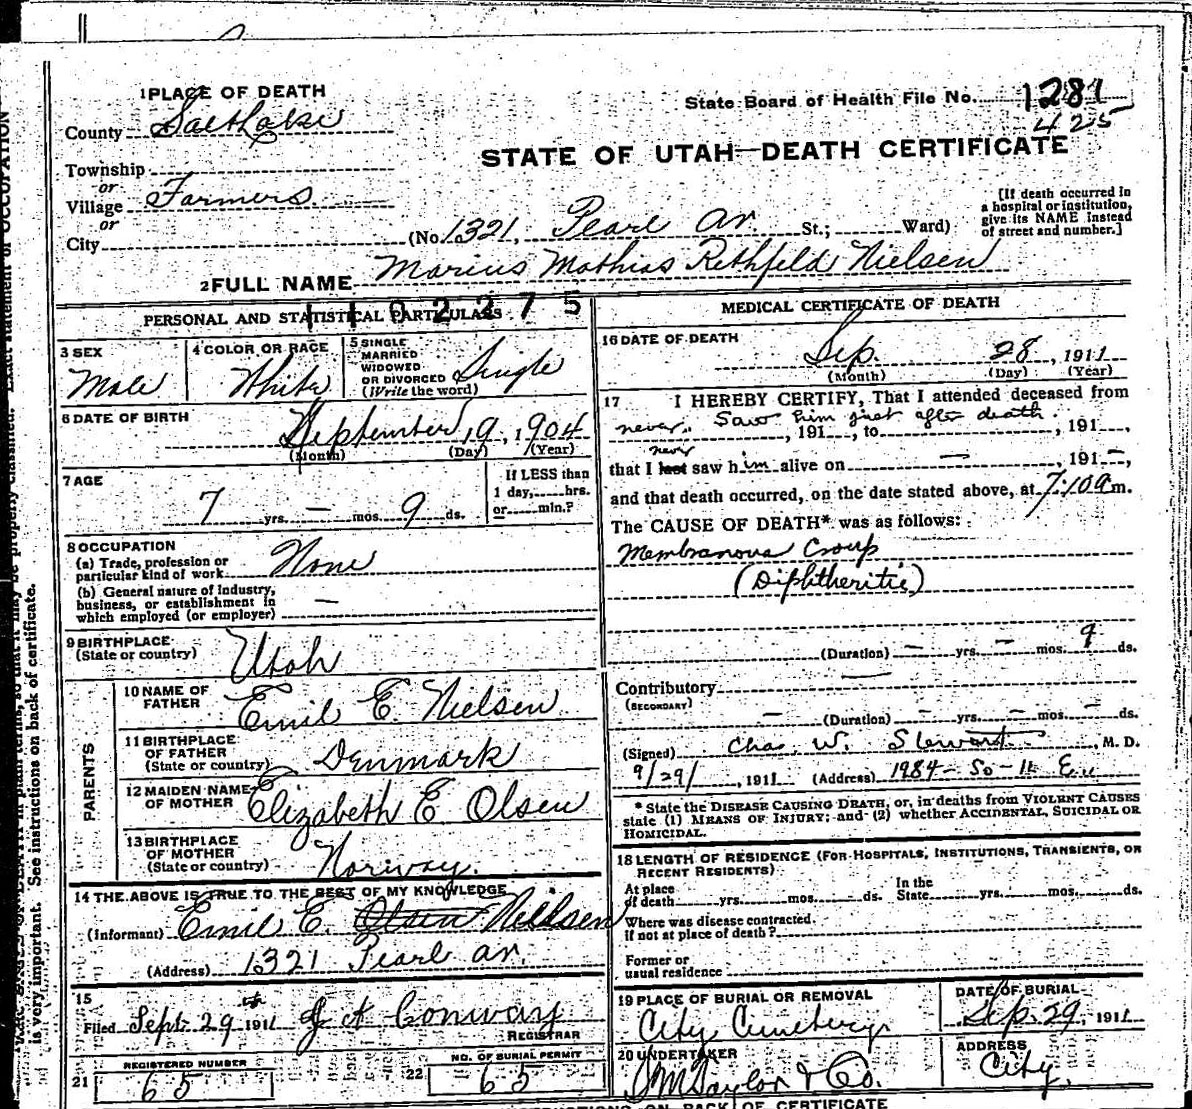 1 PLACE OF DEATH
State Board of Health File No. 1281
425
County Salt Lake
STATE OF UTAH—DEATH CERTIFICATE
Township
or
Village Farmers
or
City (No. 1321, Pearl av. St.; Ward)
[If death occurred in
a hospital or institution,
give its NAME instead
of street and number.]
2 FULL NAME Marius Mathias Rethfeld Nielsen
PERSONAL AND STATISTICAL PARTICULARS
3 SEX
Male
4 COLOR OR RACE
White
5 SINGLE
MARRIED
WIDOWED
OR DIVORCED
(Write the word)
Single
6 DATE OF BIRTH
September 19, 1904
(Month) (Day) (Year)
7 AGE
7 yrs. — mos. 9 ds.
If LESS than
1 day, hrs.
or min.?
8 OCCUPATION
(a) Trade, profession or
particular kind of work None
(b) General nature of industry,
business, or establishment in
which employed (or employer) —
9 BIRTHPLACE
(State or country) Utah
PARENTS
10 NAME OF
FATHER Emil E. Nielsen
11 BIRTHPLACE
OF FATHER
(State or country) Denmark
12 MAIDEN NAME
OF MOTHER Elizabeth E Olsen
13 BIRTHPLACE
OF MOTHER
(State or country) Norway.
14 THE ABOVE IS TRUE TO THE BEST OF MY KNOWLEDGE
(Informant) Emil E. Olsen Nielsen
(Address) 1321 Pearl av.
15
Filed Sept. 29th 1911 J A Conway
REGISTRAR
21 REGISTERED NUMBER
65
22 NO. OF BURIAL PERMIT
65
MEDICAL CERTIFICATE OF DEATH
16 DATE OF DEATH
Sep. 28, 1911
(Month) (Day) (Year)
17 I HEREBY CERTIFY, That I attended deceased from
never. Saw him just after death.
, 191 , to , 191 ,
never
that I last saw him alive on — , 191—,
and that death occurred, on the date stated above, at 7:10 a m.
The CAUSE OF DEATH* was as follows:
Membranous Croup
(Diphtheritic)
(Duration) — yrs. — mos. 9 ds.
Contributory —
(SECONDARY)
— (Duration) — yrs. — mos. — ds.
(Signed) Chas. W. Steward, M. D.
9/29/, 1911 (Address) 1984 — So — 11 E
* State the DISEASE CAUSING DEATH, or, in deaths from VIOLENT CAUSES
state (1) MEANS OF INJURY; and (2) whether ACCIDENTAL, SUICIDAL OR
HOMICIDAL.
18 LENGTH OF RESIDENCE (FOR HOSPITALS, INSTITUTIONS, TRANSIENTS, OR
RECENT RESIDENTS)
At place
of death yrs. mos. ds.
In the
State yrs. mos. ds.
Where was disease contracted.
if not at place of death?
Former or
usual residence
19 PLACE OF BURIAL OR REMOVAL
City Cemetery
DATE OF BURIAL
Sep. 29, 1911
20 UNDERTAKER
Taylor & Co.
ADDRESS
City.
is very important. See instructions on back of certificate.